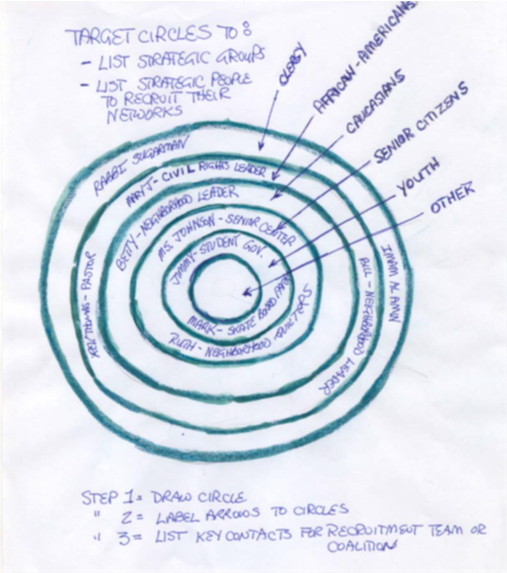 TARGET CIRCLES TO:
- LIST STRATEGIC GROUPS
- LIST STRATEGIC PEOPLE
TO RECRUIT THEIR
NETWORKS
CLERGY
AFRICAN-AMERICANS
CAUCASIANS
SENIOR CITIZENS
YOUTH
OTHER
RABBI SUGARMAN
- CIVIL RIGHTS LEADER
BETTY - NEIGHBORHOOD LEADER
MS. JOHNSON - SENIOR CENTER
JIMMY - STUDENT GOV.
MARK - SKATE BOARD
RUTH - NEIGHBORHOOD
- PASTOR
BILL - NEIGHBORHOOD LEADER
IMAM AL AMIN
STEP 1 = DRAW CIRCLE
" 2 = LABEL ARROWS TO CIRCLES
" 3 = LIST KEY CONTACTS FOR RECRUITMENT TEAM OR
COALITION